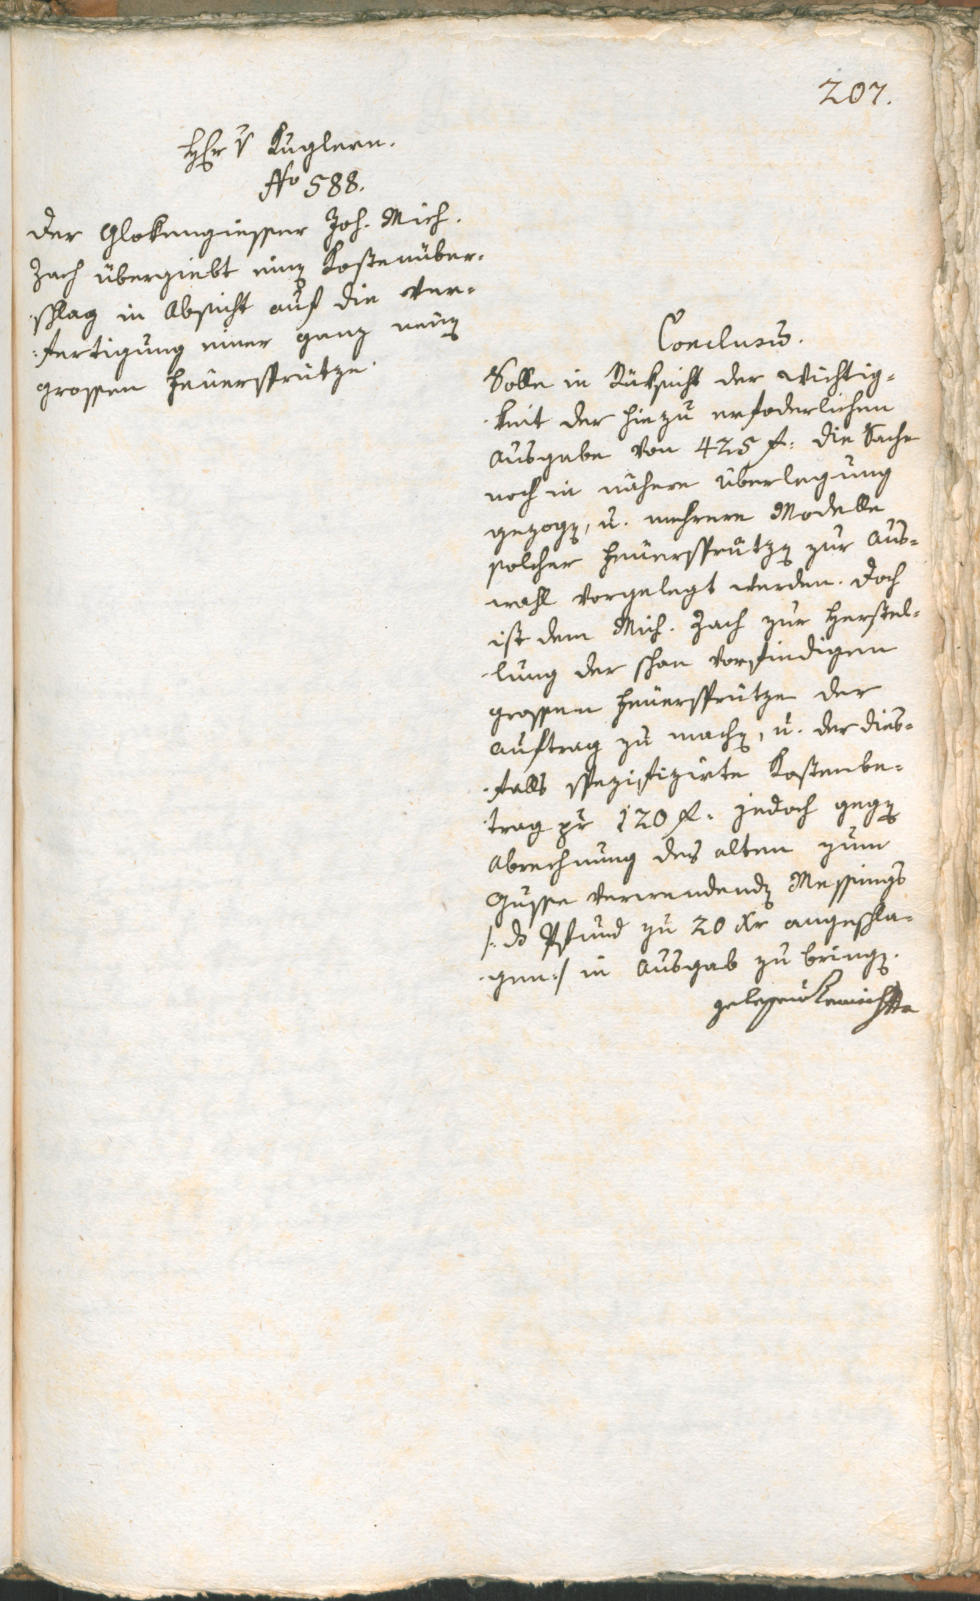 207.
Hr v Kuglern.
No 588.
Der Glokengiesser Joh. Mich.
Zach übergiebt einen Kostenüber=
schlag in Absicht auf die Ver=
fertigung einer ganz neuen
grossen Feuersprütze.
Conclusum.
Solle in Rüksicht der Wichtig=
keit der hiezu erfoderlichen
Ausgabe von 425 f: die Sache
noch in nähere Überlegung
gezogen, u. mehrere Modelle
solcher Feuersprützen zur Aus=
wahl vorgelegt werden. Doch
ist dem Mich. Zach zur Herstel=
lung der schon vorfindigen
grossen Feuersprütze der
Auftrag zu machen, u. der dies=
falls spezifizirte Kostenbe=
trag pr 120 f: jedoch gegen
Abrechnung des alten zum
Gusse verwendenden Messings
/: das Pfund zu 20 Xr angeschla=
gen :/ in Ausgab zu bringen.
gelesen